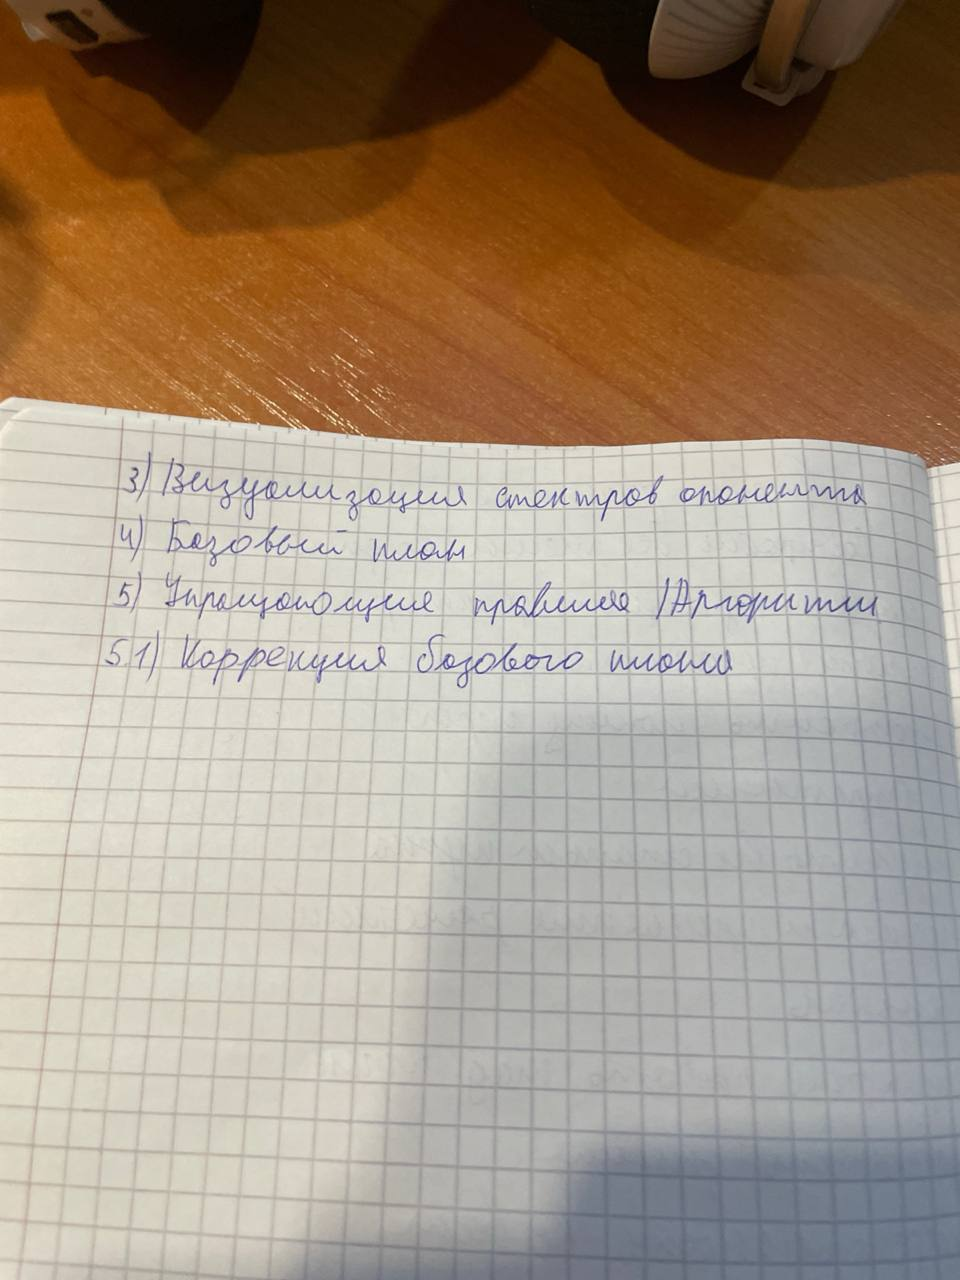 3) Визуализация спектров опонента
4) Базовый план
5) Упрощающие правила /Алгоритм
5 1) Коррекция базового плана